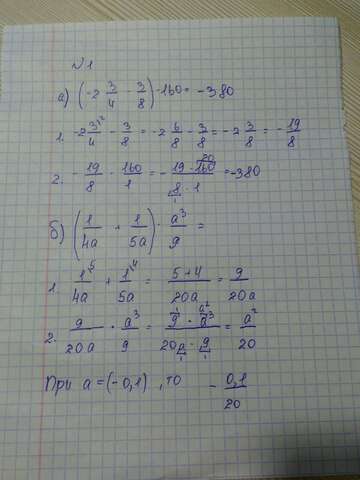 №1
а) (-2 3/4 - 3/8) · 160 = -380
1. -2 3\²/4 - 3/8 = -2 6/8 - 3/8 = -2 3/8 = - 19/8
2. - 19/8 · 160/1 = - 19 · 160 20/8 · 1 1 = -380
б) (1/4a + 1/5a) · a³/9 =
1. 1\⁵/4a + 1\⁴/5a = 5+4/20a = 9/20a
2. 9/20a · a³/9 = 9 · a³ 1 a²/20a · 9 1 1 = a²/20
При a = (-0,1) , то - 0,1/20